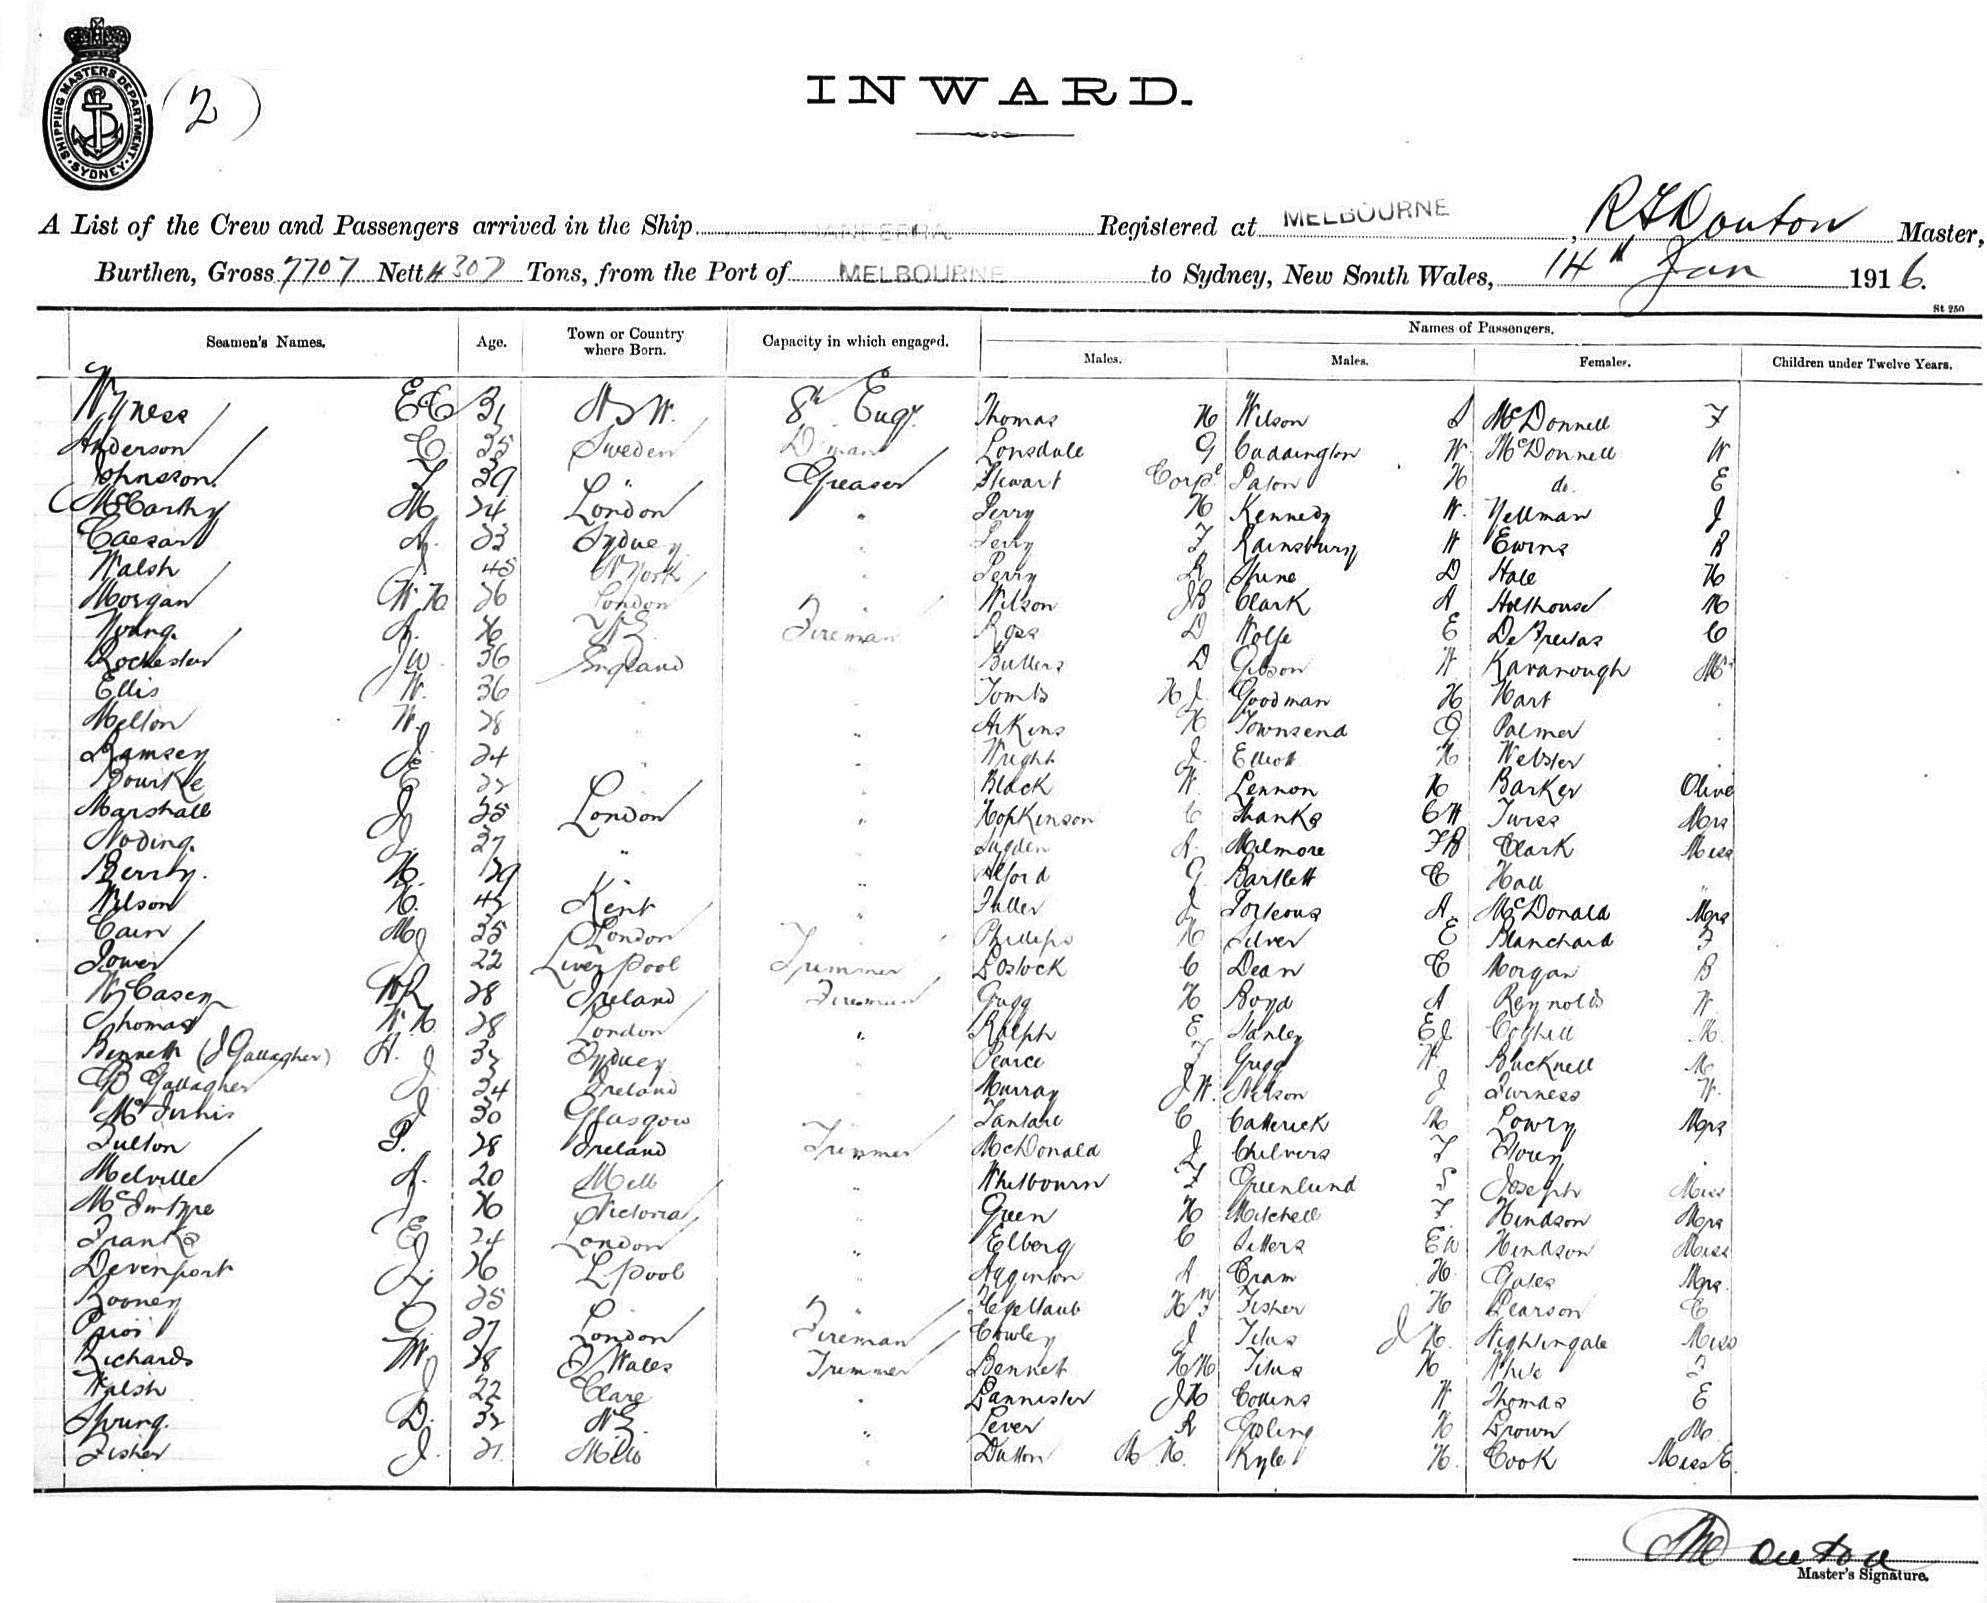 SHIPPING MASTERS DEPARTMENT. SYDNEY.
(2)
INWARD.
A List of the Crew and Passengers arrived in the Ship CANBERRA Registered at MELBOURNE, Master,
Burthen, Gross 7707 Nett 4307 Tons, from the Port of MELBOURNE to Sydney, New South Wales, 14th Jan 1916.
St 250
Seamen's Names. Age. Town or Country where Born. Capacity in which engaged. Names of Passengers.
Males. Males. Females. Children under Twelve Years.
Wyness 31 N S W. 8th Engr. Thomas H Wilson S McDonnell F
Anderson C. 35 Sweden D'man Lonsdale G Caddington W. McDonnell W
Johnsson. 39 " Greaser Stewart Corpl Paton H do. E
McCarthy M 24 London " Perry H Kennedy W. Yellman J
Caesar A. 23 Sydney " Perry F Rainsbury W Ewins B
Walsh J 45 N York " Perry R Shine D Hale H
Morgan W H 26 London " Wilson JB Clark A Holthouse M
Young. A. 26 N Z. Fireman Ross D Wolfe E De Freitas C
Rochester J W. 36 England " Butters D Gibson W Kavanough Mrs
Ellis W. 36 " Tombs H J. Goodman H Hart "
Melton W. 28 " " Atkins H Townsend G Palmer "
Ramsey J 24 " Wright J. Elliott H Webster
Bourke E 22 Black W. Lennon H Barker Olive
Marshall J 25 London " Hopkinson C Shanks C W Twiss Mrs
Noding. J. 27 " Sugden A. Milmore F B Clark Miss
Berry. H. 29 " " Alford G Bartlett C Hall "
Wilson H. 42 Kent " Fuller J Porteous A. McDonald Mrs
Cain M 35 London " Phillips H Silver E Blanchard F
Power J 22 Liverpool Trimmer Bostock C Dean C Morgan B
Casey 28 Ireland Fireman Gugg H Boyd A Reynolds W
Thomas W. H. 28 London " Ralph E. Stanley E J Coghill M.
Bennett (J Gallagher) A. 32 Sydney " Pearce F Gugg W. Bucknell M
Gallagher J. 24 Ireland " Murray J W. Nelson J Furness W.
J 30 Glasgow " C Catterick M Lowry Mrs
Fulton P. 28 Ireland Trimmer McDonald J Chilvers F "
Melville A. 20 Melb " Whelbourn F Greenlund S Joseph Miss
McIntype J 26 Victoria " Green H Mitchell F Hindson Mrs
Franks E 24 London " Elberg C Sitters E W Hindson Miss
Devenport J. 26 L'pool " A Cram H. Gates Mrs.
Rooney 25 " " Fisher H Pearson C
27 London Fireman Cowley J Titus J H. Nightingale Miss
Richards W. 28 S Wales Trimmer Bennet H H Titus H White F
Walsh J 22 Clare " Bannister J H Collins W Thomas E
Spring. D. 32 N Z. " Lever R Gosling H Brown M.
Fisher J. 21 Melb " Dutton M H. Kyle H. Cook Miss E.
Master's Signature.